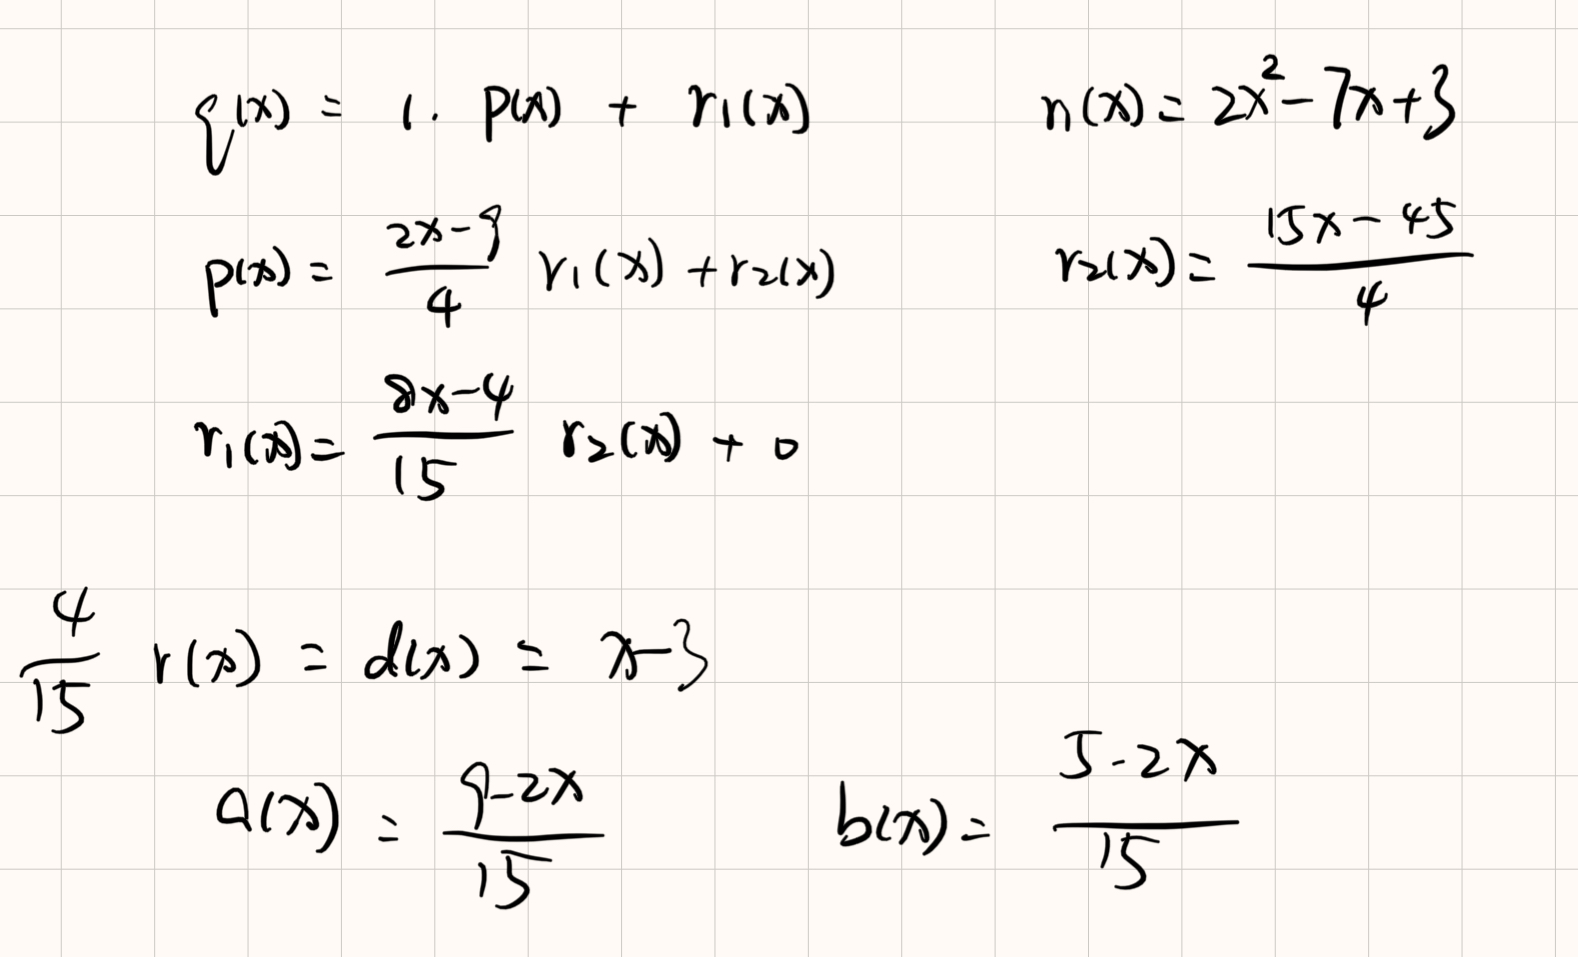 q(x) = 1. p(x) + r₁(x) n(x) = 2x² - 7x + 3
p(x) = (2x-9)/4 r₁(x) + r₂(x) r₂(x) = (15x - 45)/4
r₁(x) = (8x-4)/15 r₂(x) + 0
4/15 r(x) = d(x) = x-3
a(x) = (9-2x)/15 b(x) = (5-2x)/15